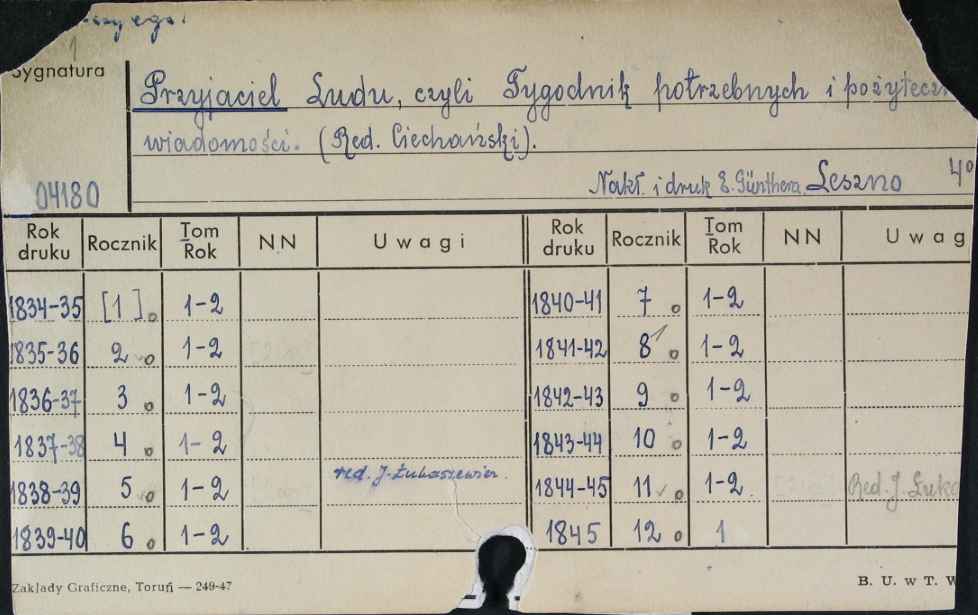 1
Sygnatura
Przyjaciel Ludu, czyli Tygodnik potrzebnych i pożyteczn
wiadomości. (Red. Ciechański).
Nakł. i druk E. Günthera, Leszno 4°
04180
Rok druku Rocznik Tom Rok NN Uwagi Rok druku Rocznik Tom Rok NN Uwag
1834-35 [1] 1-2 1840-41 7 1-2
1835-36 2 1-2 1841-42 8 1-2
1836-37 3 1-2 1842-43 9 1-2
1837-38 4 1-2 1843-44 10 1-2
1838-39 5 1-2 red. J. Łukaszewicz. 1844-45 11 1-2 Red. J. Łuka
1839-40 6 1-2 1845 12 1
Zakłady Graficzne, Toruń — 249-47 B. U. w T. W